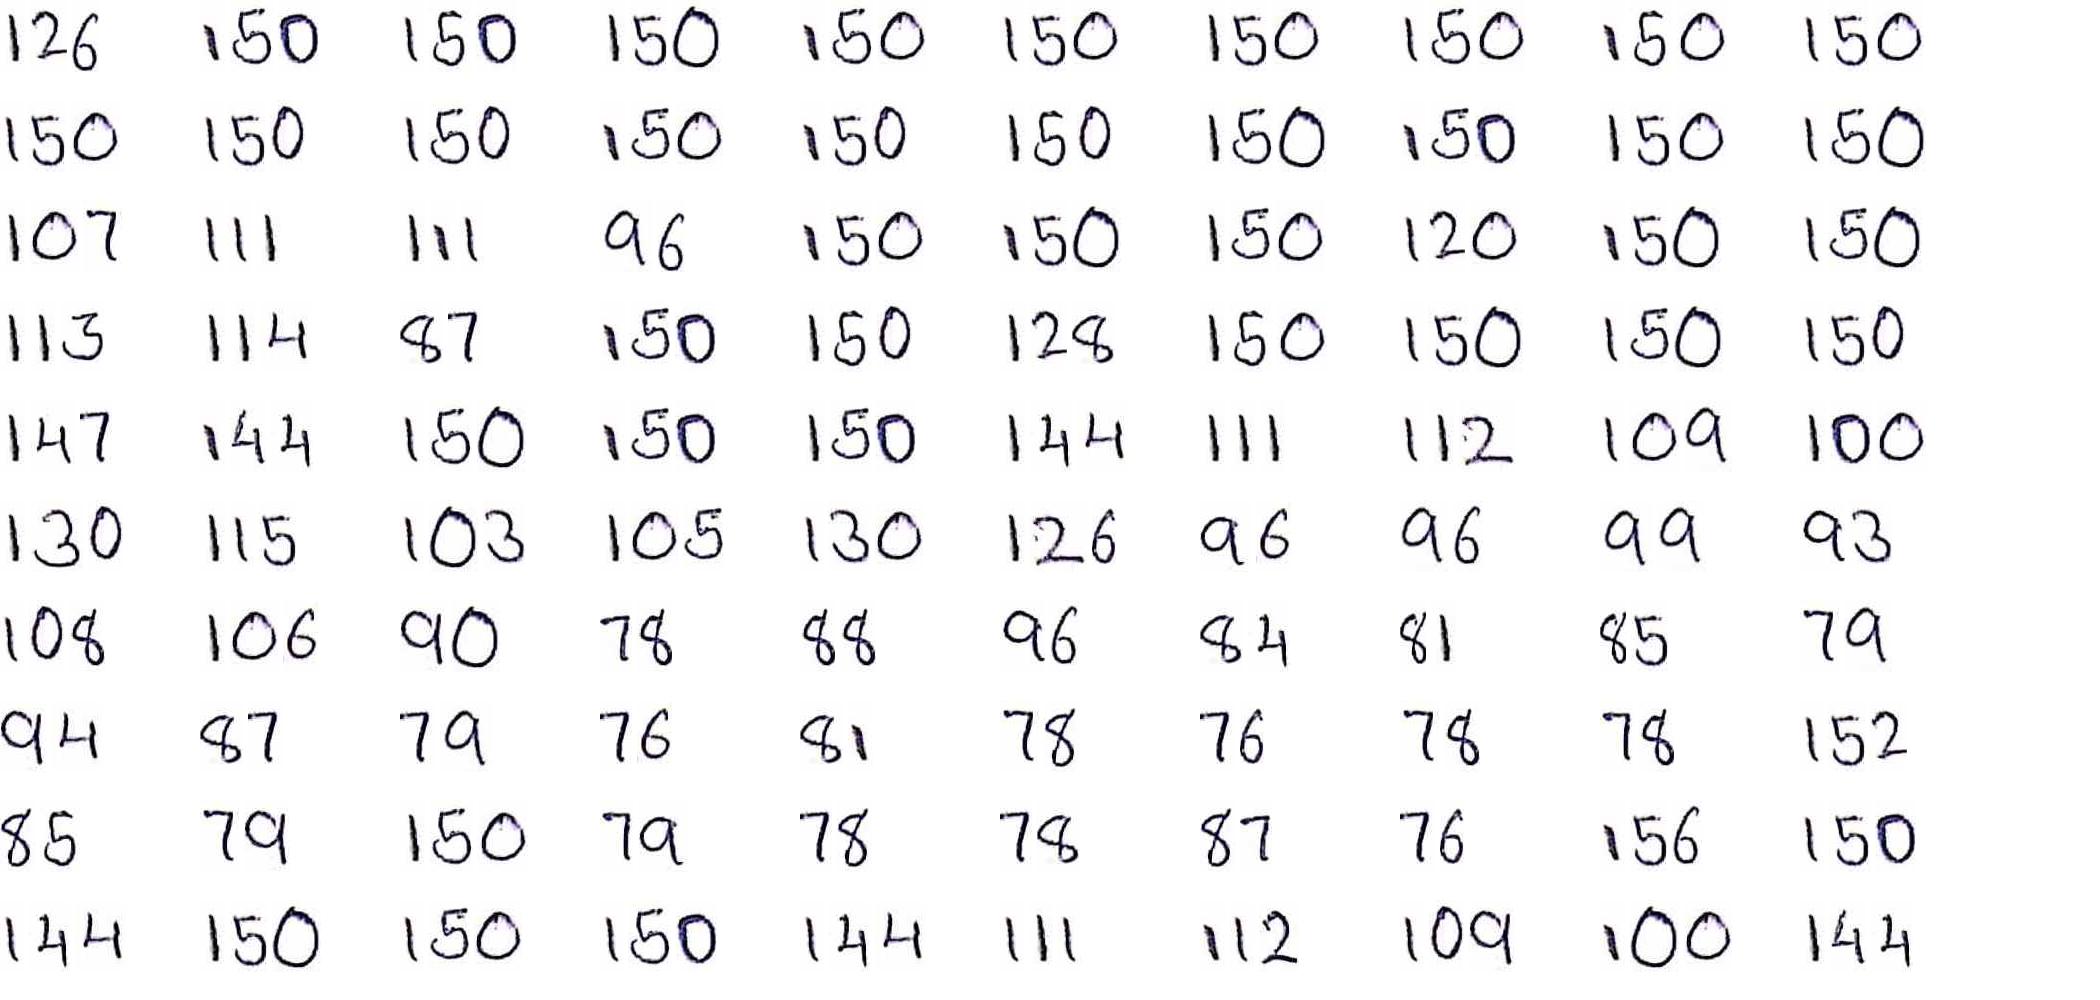 126 150 150 150 150 150 150 150 150 150
150 150 150 150 150 150 150 150 150 150
107 111 111 96 150 150 150 120 150 150
113 114 87 150 150 128 150 150 150 150
147 144 150 150 150 144 111 112 109 100
130 115 103 105 130 126 96 96 99 93
108 106 90 78 88 96 84 81 85 79
94 87 79 76 81 78 76 78 78 152
85 79 150 79 78 78 87 76 156 150
144 150 150 150 144 111 112 109 100 144